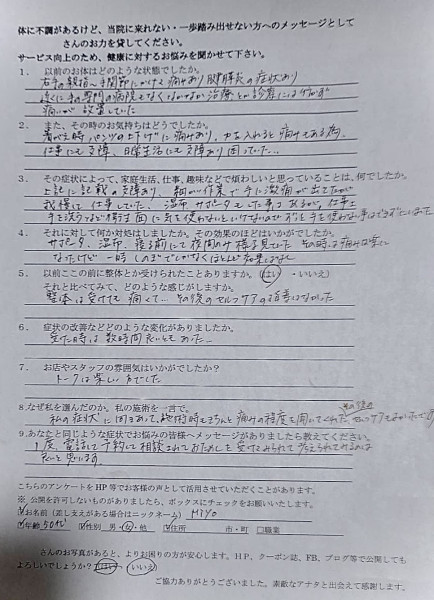 体に不調があるけど、当院に来れない・一歩踏み出せない方へのメッセージとして
さんのお力を貸してください。
サービス向上のため、健康に対するお悩みを聞かせて下さい。
1. 以前のお体はどのような状態でしたか。
右手の親指〜手関節にかけて痛みあり 腱鞘炎の症状あり
近くに手の専門の病院もなくなかなか治療とか診察には行かず
痛いが放置していた
2. また、その時のお気持ちはどうでしたか。
着がえ時パンツの上げ下げに痛みあり、力を入れると痛みもある為、
仕事にも支障、日常生活にも支障あり困っていた...
3. その症状によって、家庭生活、仕事、趣味などで煩わしいと思っていることは、何でしたか。
上記に記載の支障あり、細かい作業で手に激痛が出てたが
我慢して仕事していた、湿布 サポーターをした事もあるが、仕事上
手を洗うなど衛生面に気を使わないといけないので
4. それに対して何か対処はしましたか。その効果のほどはいかがでしたか。
サポーター、湿布、寝る前にて夜間のみ様子見ていた その時は痛みは楽に
なったけど一時しのぎでしかなくほとんど効果はなし
5. 以前ここの前に整体とか受けられたことありますか。(はい ・いいえ)
それと比べてみて、どのような感じがしますか。
整体は受けても痛くて... その後のセルフケアの指導はなかった
6. 症状の改善などどのような変化がありましたか。
受けた時は数時間良いともあった...
7. お店やスタッフの雰囲気はいかがでしたか？
トークは楽しい方でした
8.なぜ私を選んだのか。私の施術を一言で。
私の症状に向きあって、施術時もきちんと痛みの程度を聞いてくれた その後の セルフケアもよかったです
9.あなたと同じような症状でお悩みの皆様へメッセージがありましたら教えてください。
1度、電話して予約して相談されておためしを受けてみられて考えられてみるのは
良いと思います。
こちらのアンケートをHP等でお客様の声として活用させていただくことがあります。
※ 公開を許可しないものがありましたら、ボックスにチェックをお願いいたします。
☑お名前（差し支えがある場合はニックネーム） MIYO
☑年齢 50代 ☑性別 男・女・他 ☑住所 市・町 □職業
さんのお写真があると、よりお困りの方が安心します。HP、クーポン誌、FB、ブログ等で公開しても
よろしいでしょうか？（はい・いいえ）
ご協力ありがとうございました。素敵なアナタと出会えて感謝します。